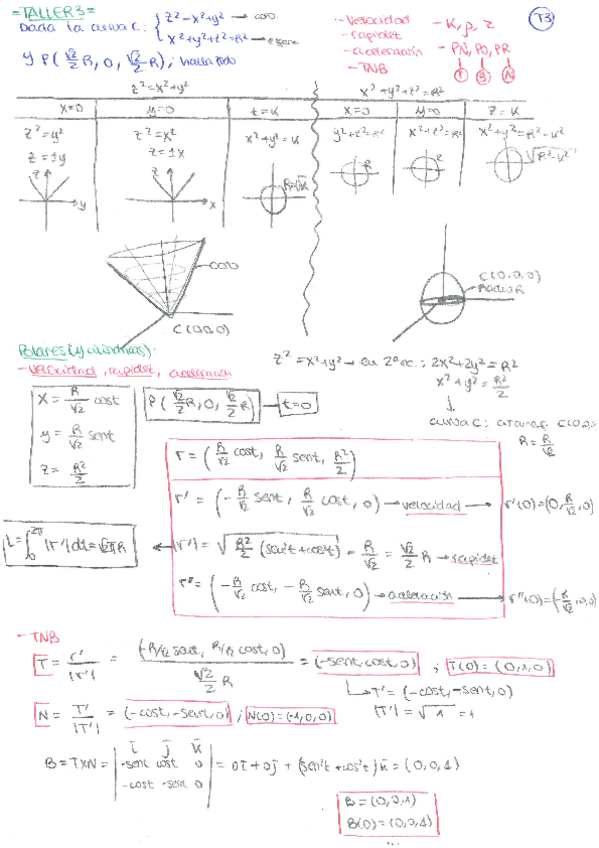 =TALLER3=
T3
Dada la curva C: { z²=x²+y² → cono
x²+y²+z²=R² → esfera
y P(√2/2 R, 0, √2/2 R), halla todo
- velocidad
- rapidez
- aceleración
- TNB
- K, ρ, τ
- PN, PO, PR
T B N
z²=x²+y²
x²+y²+z²=R²
x=0 y=0 z=k x=0 y=0 z=k
z²=y² z²=x² x²+y²=k y²+z²=R² x²+z²=R² x²+y²=R²-k²
z=±y z=±x
z z R=√k R R √R²-k²
y x
cono
C(0,0,0)
C(0,0,0)
Radio R
Polares (y cilíndricas):
- velocidad, rapidez, aceleración
z²=x²+y² → en 2ª ec.: 2x²+2y²=R²
x²+y²=R²/2
curva C: circunf. C(0,0,
R=R/√2
x = R/√2 cost
y = R/√2 sent
z = R²/2
P(√2/2 R, 0, √2/2 R) → t=0
r = (R/√2 cost, R/√2 sent, R²/2)
r' = (-R/√2 sent, R/√2 cost, 0) → velocidad → r'(0)=(0, R/√2, 0)
L=∫₀^2π |r'|dt=√2πR ← |r'| = √R²/2 (sen²t+cos²t) = R/√2 = √2/2 R → rapidez
r'' = (-R/√2 cost, -R/√2 sent, 0) → aceleración → r''(0)=(-R/√2, 0, 0)
- TNB
T = r'/|r'| = (-R/√2 sent, R/√2 cost, 0) / (√2/2 R) = (-sent, cost, 0) ; T(0) = (0,1,0)
↳ T' = (-cost, -sent, 0)
|T'| = √1 = 1
N = T'/|T'| = (-cost, -sent, 0) ; N(0) = (-1,0,0)
B = TXN = | i j k
-sent cost 0
-cost -sent 0 | = 0i + 0j + (sen²t + cos²t)k = (0,0,1)
B = (0,0,1)
B(0) = (0,0,1)